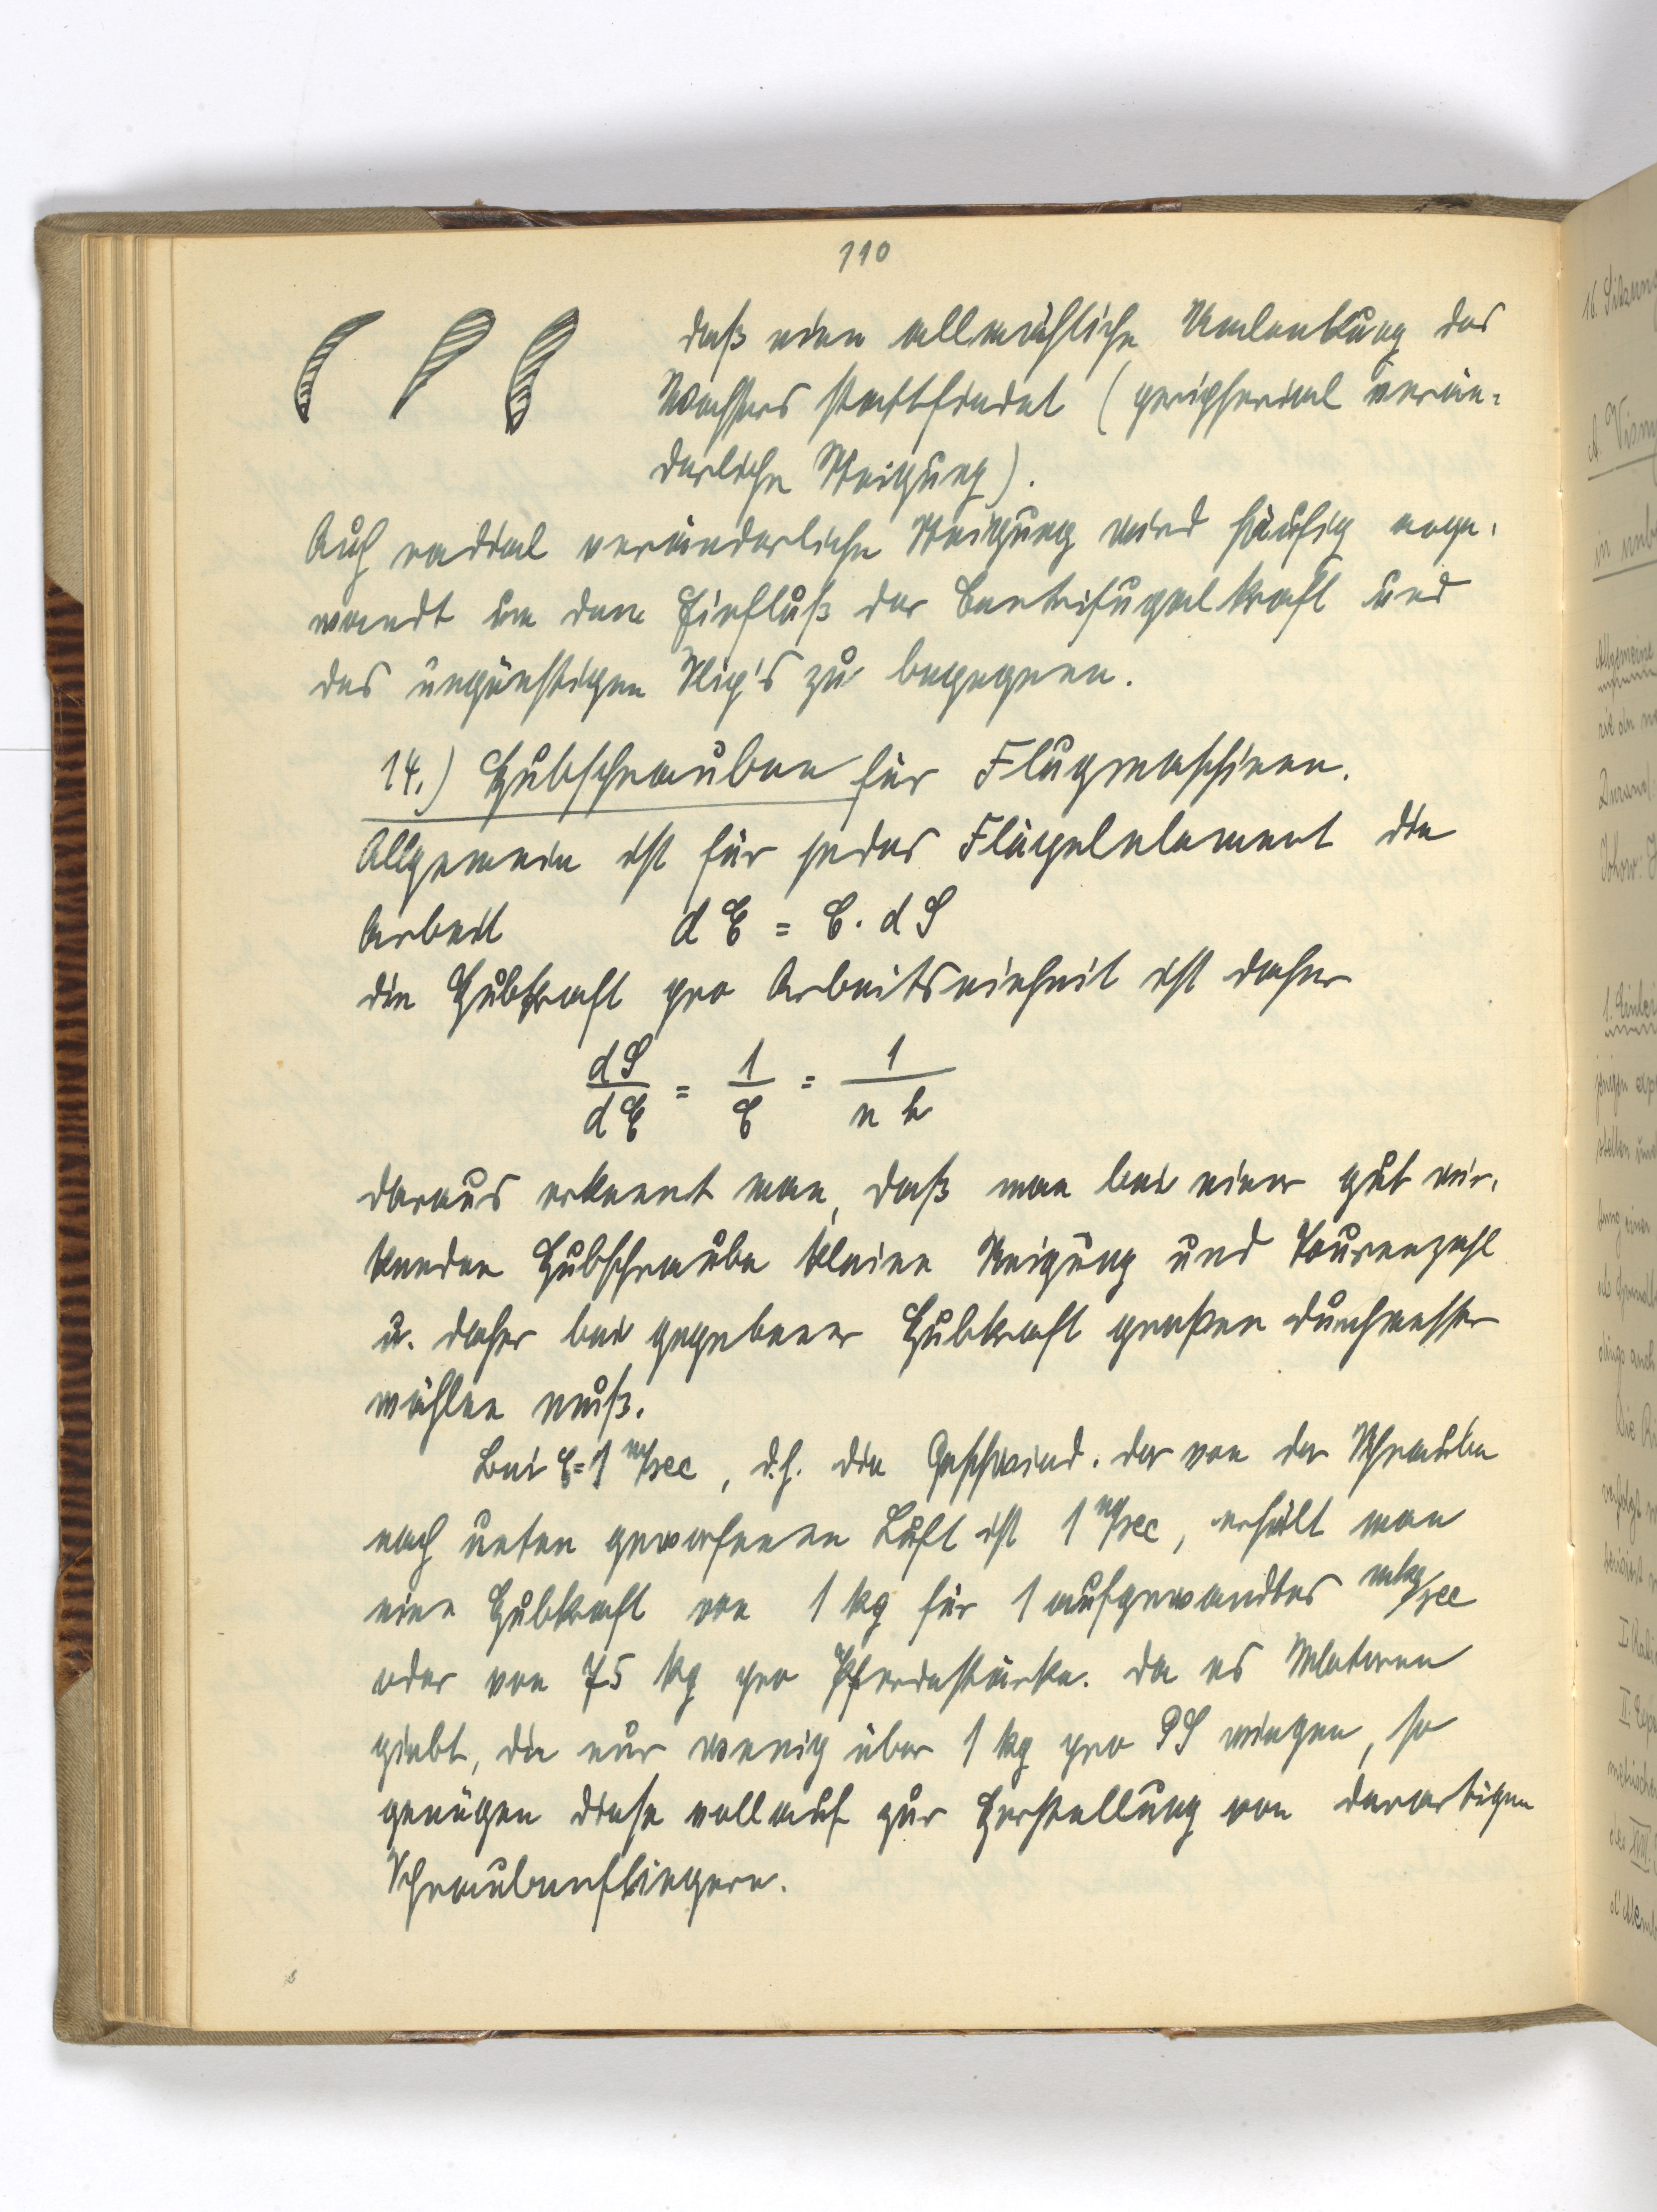 110
daß eine allmähliche Umlenkung des
Wassers stattfindet (peripherial verän-
derliche Steigung).
Auch radial veränderliche Steigung wird häufig ange-
wandt um dem Einfluß der Centrifugalkraft und
des ungünstigen Slip's zu begegnen.
14.) Hubschrauben für Flugmaschinen.
Allgemein ist für jedes Flügelelement die
Arbeit dE = C. dS
die Hubkraft pro Arbeitseinheit ist daher
dS/dE = 1/C = 1/n h
daraus erkennt man, daß man bei einer gut wir-
kenden Hubschraube kleine Steigung und Tourenzahl
u. daher bei gegebener Hubkraft großen Durchmesser
wählen muß.
Bei C=1 m/sec, d.h. die Geschwind. der von der Schraube
nach unten geworfenen Luft ist 1 m/sec, erhält man
eine Hubkraft von 1 kg für 1 aufgewandtes mkg/sec
oder von 75 kg pro Pferdestärke. Da es Motoren
giebt, die nur wenig über 1 kg pro PS wiegen, so
genügen diese vollauf zur Herstellung von derartigen
Schraubenfliegern.
16. Sitzung
in unb
Allgemeine